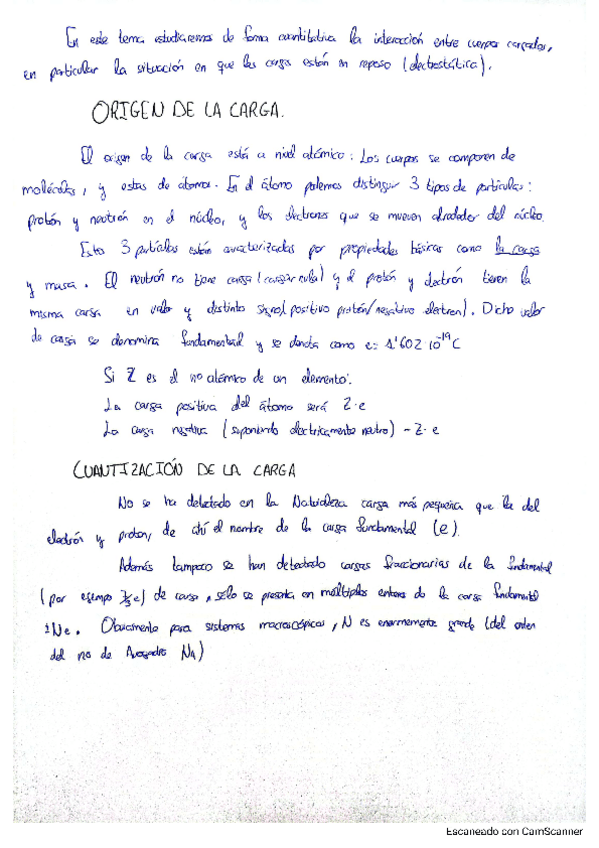 En este tema estudiaremos de forma cuantitativa la interacción entre cuerpos cargados,
en particular la situación en que las carga están en reposo (electrostática).
ORIGEN DE LA CARGA.
El origen de la carga está a nivel atómico: Los cuerpos se componen de
moléculas, y estas de átomos. En el átomo podemos distinguir 3 tipos de partículas:
protón y neutrón en el núcleo, y los electrones que se mueven alrededor del núcleo.
Esta 3 partículas están caracterizadas por propiedades básicas como la carga
y masa. El neutrón no tiene carga (carga nula) y el protón y electrón tienen la
misma carga en valor y distinto signo (positivo protón/negativo electron). Dicho valor
de carga se denomina fundamental y se denota como e = 1'602 10^-19 C
Si Z es el no atómico de un elemento:
La carga positiva del átomo será Z·e
La carga negativa (suponiendo electricamente neutro) -Z·e
CUANTIZACIÓN DE LA CARGA
No se ha detectado en la Naturaleza carga más pequeña que la del
electrón y proton, de ahí el nombre de la carga fundamental (e).
Además tampoco se han detectado cargas fraccionarias de la fundamental
(por ejemplo e) de carga, sólo se presenta en múltiplos enteros de la carga fundamental
±Ne. Obviamente para sistemas macroscópicos, N es enormemente grande (del orden
del no de Avogadro NA)
Escaneado con CamScanner